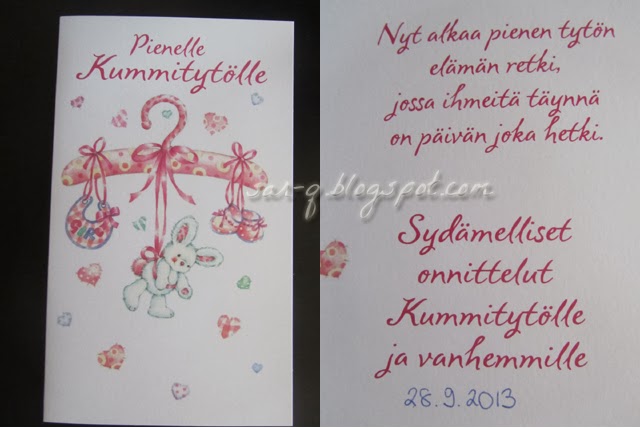 Pienelle
Kummitytölle
Nyt alkaa pienen tytön
elämän retki,
jossa ihmeitä täynnä
on päivän joka hetki.
sar-q.blogspot.com
Sydämelliset
onnittelut
Kummitytölle
ja vanhemmille
28.9.2013